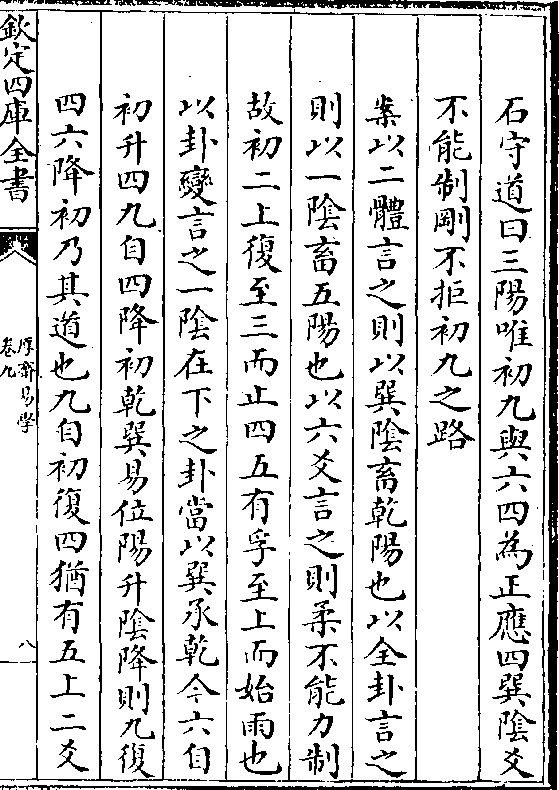 石守道曰三陽唯初九與六四為正應四巽陰爻
不能制剛不拒初九之路
案以二體言之則以巽陰畜乾陽也以全卦言之
則以一陰畜五陽也以六爻言之則柔不能力制
故初二上復至三而止四五有孚至上而始雨也
以卦變言之一陰在下之卦當以巽承乾今六自
初升四九自四降初乾巽易位陽升陰降則九復
四六降初乃其道也九自初復四猶有五上二爻
欽定四庫全書
厚齋易學
卷九
八